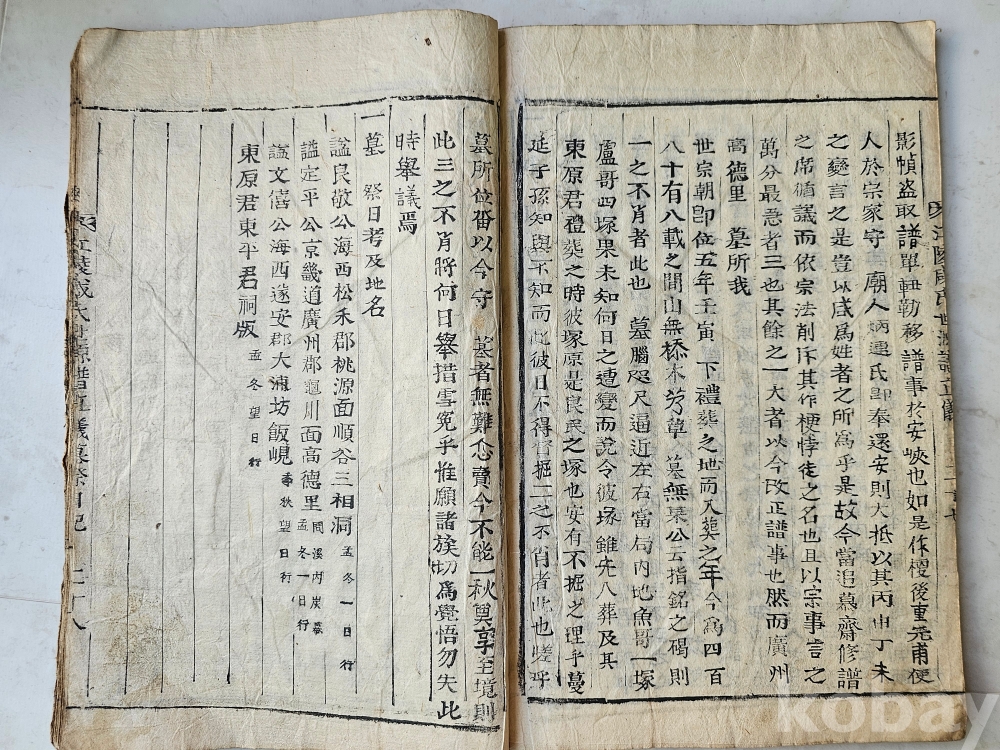 影幀盜取譜單勒移譜事於安峽也如是作梗後重先甫便
人於宗家守廟人炳還氏卽奉還安則大抵以其丙申丁未
之變言之是豈以咸爲姓者之所爲乎是故今當追慕齋修譜
之席循議而依宗法削斥其作梗悖徒之名也且以宗事言之
萬分最急者三也其餘之一大者以今改正譜事也然而廣州
高德里 墓所我
世宗朝卽位五年壬寅 下禮葬之地而入葬之年今爲四百
八十有八載之間山無椽木芳草 墓無某公云指銘之碣則
一之不肖者此也 墓腦咫尺逼近在左右當局內地魚哥一塚
盧哥四塚果未知何日之遭變而說令彼塚雖先入葬及其
東原君禮葬之時彼塚原是良民之塚也安有不掘之理乎蔓
延子孫知與不知而此彼日不得督掘二之不肖者此也嗟乎
墓所位畓以今守 墓者無難忩賣今不能一秋奠享至境則
此三之不肖將何日擧措雪冤乎惟願諸族切爲覺悟勿失此
時擧議焉
一墓 祭日考及地名
諡良敬公海西松禾郡桃源面順谷三相洞 孟冬一日行
諡定平公京畿道廣州郡龜川面高德里 孟冬一日行
諡文僖公海西遂安郡大浦坊飯峴 秋望日行
東原君東平君祠版 孟冬望日行
二十八
kobay